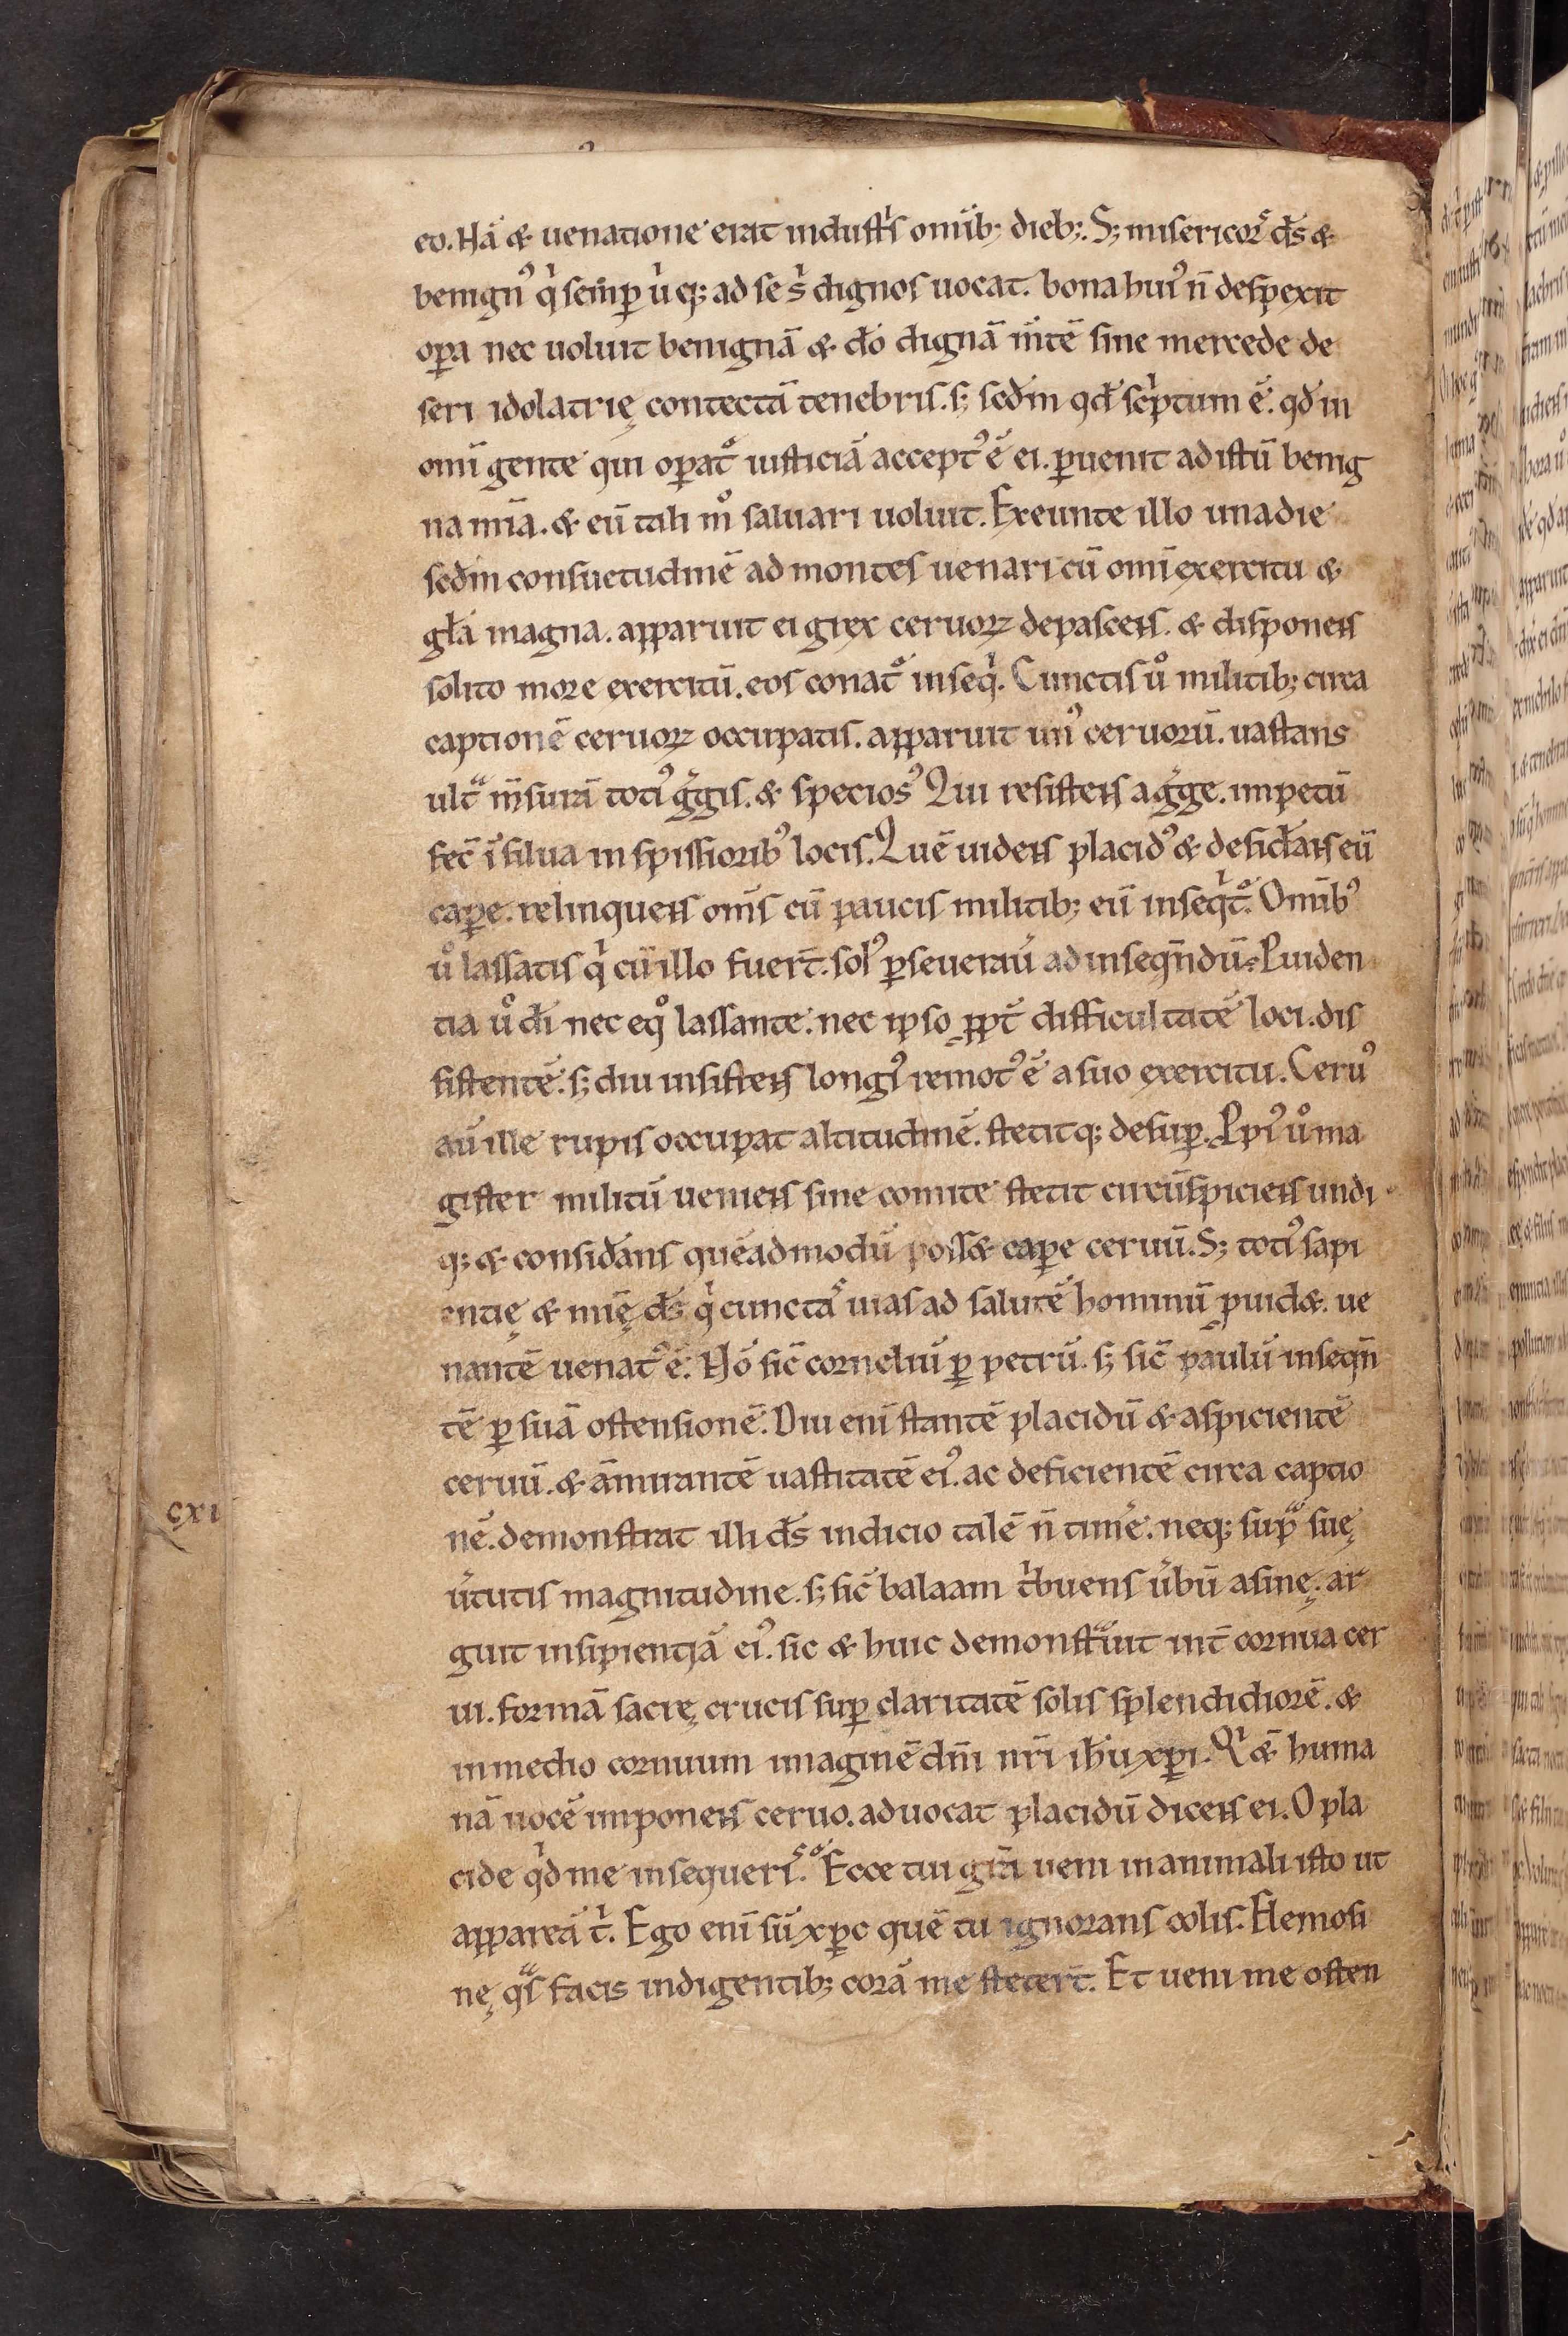 eo. Nā & uenatione erat industrꝰis omīb; dieb;. S; misericorˢ dꝭs &
benignꝰ qⁱ semꝑ uⁱq; ad se sⁱ dignos uocat. bona huiꝰ n̄ despexit
oꝑa nec uoluit benignā & dō dignā m̄tē sine mercede de
seri idolatrię contectā tenebris. s; scđm qđ scⁱptum ē. qđ in
omī gente qui oꝑat᷑ iusticiā acceptꝰ ē ei. ꝑuenit ad istū benig
na mīa. & eū tali mº saluari uoluit. Exeunte illo una die
scđm consuetudinē ad montes uenari cū omī exercitu &
gl̄a magna. apparuit ei grex ceruoꝝ depascens. & disponens
solito more exercitū. eos conat᷑ inseqⁱ. Cunctis uº militib; circa
captionē ceruoꝝ occupatis. apparuit unꝰ ceruorū. uastans
ultᵃ m̄surā totiꝰ g̾gis. & speciosꝰ Qui resistens a g̾ge. impetū
fec̄ ī silua in spissioribꝰ locis. Quē uidens placidꝰ & desid̾ans eū
caꝑe. relinquens om̄s cū paucis militib; eū inseqⁱt᷑. Omībꝰ
uº lassatis qⁱ cū illo fuer̄t. solꝰ ꝑseuerau̾ ad inseqn̄dū. Ꝓuiden
tia uº dī nec eqº lassante. nec ipso ꝓpt̄ difficultatē loci. dis
sistente. s; diu insistens longiꝰ remotꝰ ē a suo exercitu. Ceruꝰ
aū ille rupis occupat altitudinē. stetitq; desuꝑ. Ipiꝰ uº ma
gister militū ueniens sine comite stetit circūspiciens undi
q; & consid̾ans quēadmodū poss& caꝑe ceruū. S; totiꝰ sapi
entię & mīę dꝭs qⁱ cunctaˢ uias ad salutē hominū ꝓuid&. ue
nantē uenatꝰ ē. Nō sic̄ corneliū ꝑ petrū. s; sic̄ paulū inseqn̄
tē ꝑ suā ostensionē. Diu enī stantē placidū & aspicientē
ceruū. & āmirantē uastitatē eiꝰ. ac deficientē circa captio
nē. demonstrat illi dꝭs indicio talē n̄ tim̾e. neq; supᵃ suę
u̾tutis magnitudine. s; sic̄ balaam tⁱbuens u̾bū asinę. ar
guit insipientiā eiꝰ. sic & huic demonstᵃuit int̄ cornua cer
ui. formā sacrę crucis suꝑ claritatē solis splendidiorē. &
in medio cornuum imaginē dn̄i nr̄i ih̄u xp̄i. Qⁱ &̄ huma
nā uocē imponens ceruo. aduocat placidū dicens ei. O pla
cide qⁱd me insequerisˢ. Ecce tui gr̄a ueni in animali isto ut
appareā tⁱ. Ego enī sū xp̄c quē tu ignorans colis. Elemosi
nę qᵃs facis indigentib; corā me steter̄t. Et ueni me osten
cxi